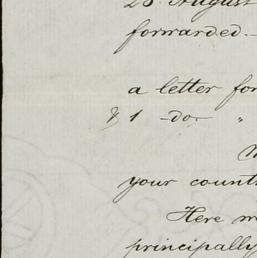 28 August
forwarded.-
a letter for
& 1 -do- "
your count
Here
principally